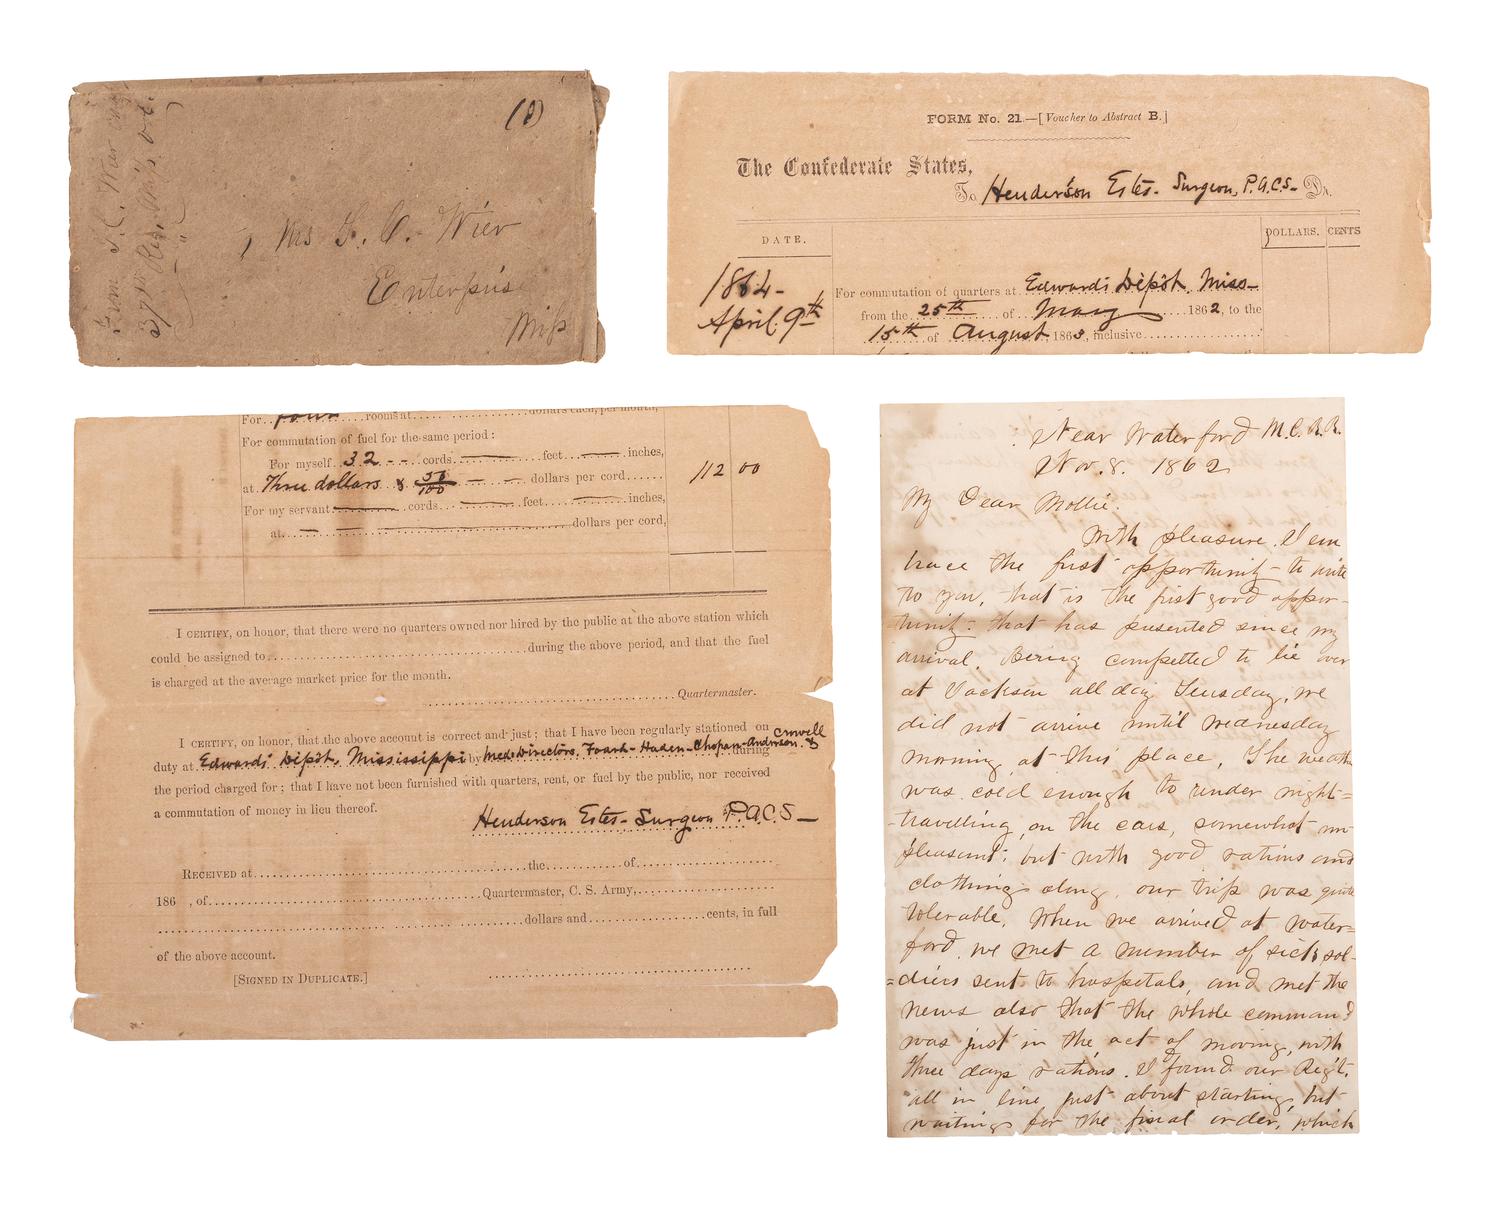 (1)
Mrs S. C. Wier
Enterprise
Miss
From S. C. Wier
37th Reg. Miss. Vol.
FORM No. 21.—[Voucher to Abstract B.]
The Confederate States,
To Henderson Estes - Surgeon, P.A.C.S- Dr.
DATE. DOLLARS. CENTS
1864-
April 9th
For commutation of quarters at Edwards Dépôt, Miss-
from the 25th of May 1862, to the
15th of August 1863, inclusive
For four rooms at dollars each, per month,
For commutation of fuel for the same period:
For myself 32 - - cords feet inches,
at Three dollars & 50/100 - - dollars per cord 112 00
For my servant cords feet inches,
at dollars per cord,
I CERTIFY, on honor, that there were no quarters owned nor hired by the public at the above station which
could be assigned to during the above period, and that the fuel
is charged at the average market price for the month.
Quartermaster.
I CERTIFY, on honor, that the above account is correct and just; that I have been regularly stationed on
duty at Edwards' Dépôt, Mississippi by Med. Directors, Foard - Haden - Chopan - Anderson & Crowell during
the period charged for; that I have not been furnished with quarters, rent, or fuel by the public, nor received
a commutation of money in lieu thereof.
Henderson Estes - Surgeon P.A.C.S-
RECEIVED at the of
186 , of Quartermaster, C. S. Army,
dollars and cents, in full
of the above account.
[SIGNED IN DUPLICATE.]
Near Waterford M.C.R.R.
Nov. 8. 1862
My Dear Mollie.
With pleasure I em
brace the first opportunity to write
to you, that is the first good oppor-
tunity that has presented since my
arrival. Being compelled to lie over
at Jackson all day Teusday, we
did not arrive until Wednesday
morning at this place. The weath
was cold enough to render night=
travelling on the cars, somewhat un-
pleasant; but with good rations and
clothing along, our trip was quite
tolerable. When we arrived at Water=
ford, we met a number of sick sol-
=diers sent to hospitals, and met the
news also that the whole command
was just in the act of moving, with
three days rations. I found our Regt.
all in line just about starting, but
waiting for the final order, which